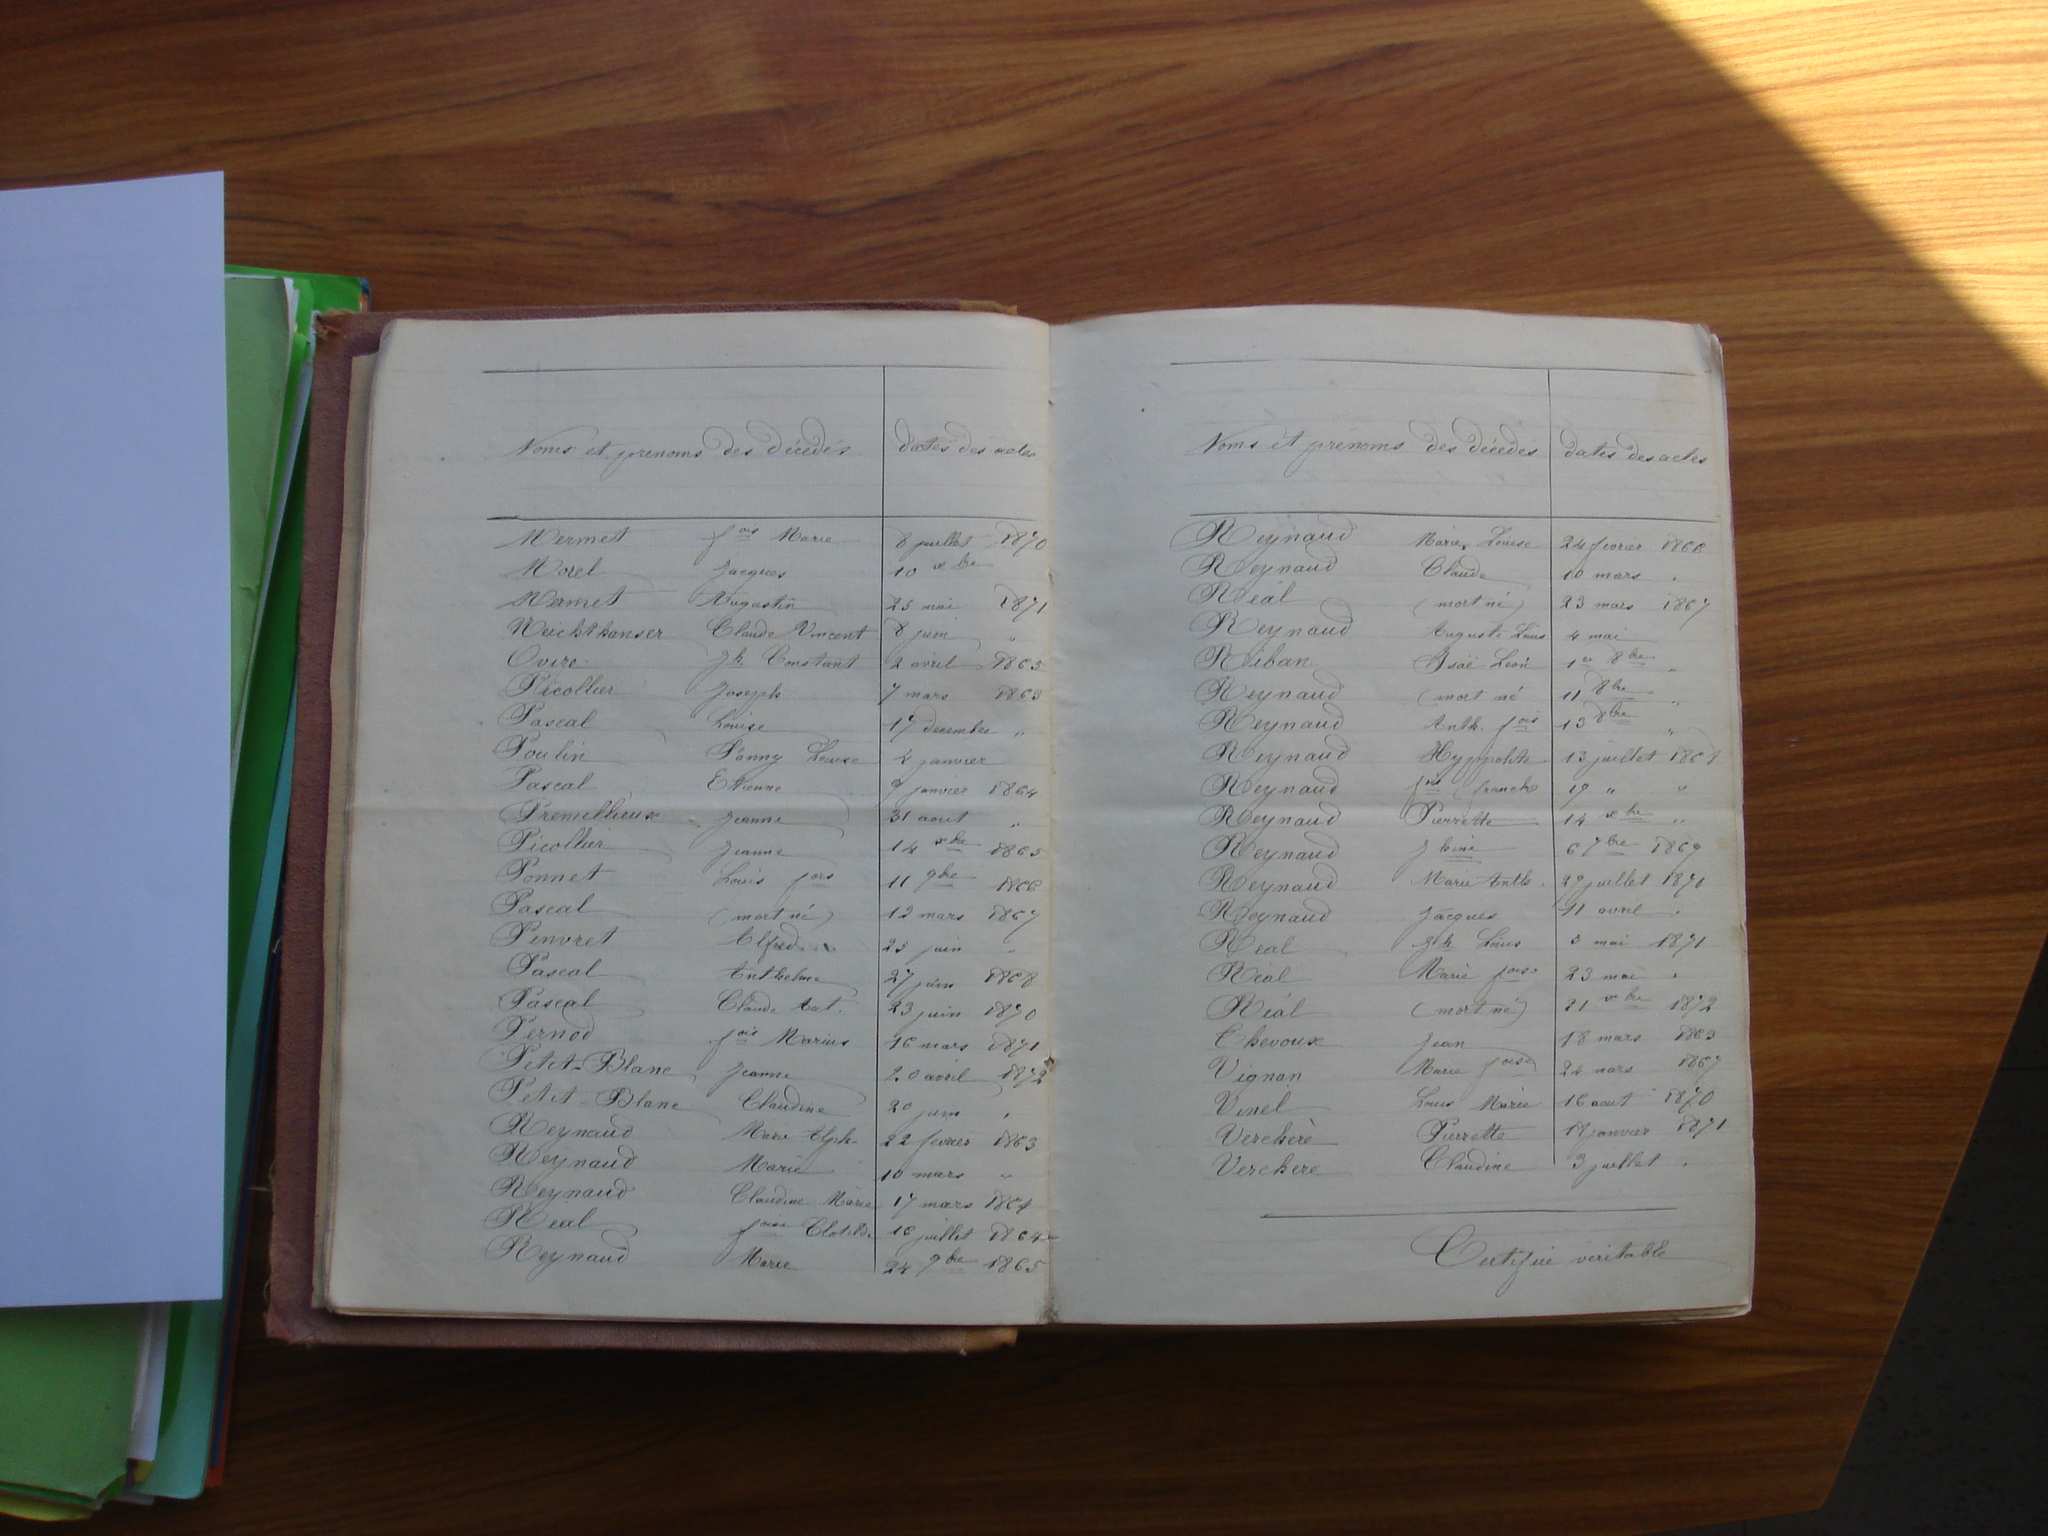 Noms et prénoms des décédés dates des actes
Mermet fois Marie 8 juillet 1870
Morel Jacques 10 xbre
Mermet Augustin 25 mai 1871
Claude Vincent 8 juin "
Jh Constant 2 avril 1863
Picollier Joseph 7 mars 1863
Pascal Louise 17 décembre "
Poulin Fanny Louise 4 janvier
Pascal Etienne 9 janvier 1864
Premillieux Jeanne 31 aout "
Picollier Jeanne 14 xbre 1865
Ponnet Louis fois 11 9bre 1866
Pascal (mort né) 12 mars 1867
Penvret Alfred 25 juin "
Pascal Anthelme 27 juin 1868
Pascal Claude Ant. 23 juin 1870
Pernod fois Marius 16 mars 1871
Petit-Blanc Jeanne 20 avril 1872
Petit-Blanc Claudine 20 juin "
Reynaud Marie Alph. 22 février 1863
Reynaud Marie 10 mars "
Reynaud Claudine Marie 17 mars 1864
Réal foise Clotilde 16 juillet 1864
Reynaud Marie 24 9bre 1865
Noms et prénoms des décédés dates des actes
Reynaud Marie Louise 24 février 1866
Reynaud Claude 10 mars "
Réal (mort né) 23 mars 1867
Reynaud Auguste Louis 4 mai
Riban Isaï Léon 1er 8bre "
Reynaud (mort né 11 8bre "
Reynaud Anth. fois 13 8bre "
Reynaud Hyppolite 13 juillet 1868
Reynaud 19 " "
Reynaud Pierrette 14 xbre "
Reynaud Jhine 6 7bre 1869
Reynaud Marie Anth. 29 juillet 1870
Reynaud Jacques 11 avril "
Réal Jh Louis 3 mai 1871
Réal Marie foise 23 mai "
Réal (mort né) 21 xbre 1872
Chevoux Jean 18 mars 1863
Vignon Marie foise 24 mars 1867
Vinel Louis Marie 16 aout 1870
Verchère Pierrette 18 janvier 1871
Verchère Claudine 3 juillet "
Certifié véritable